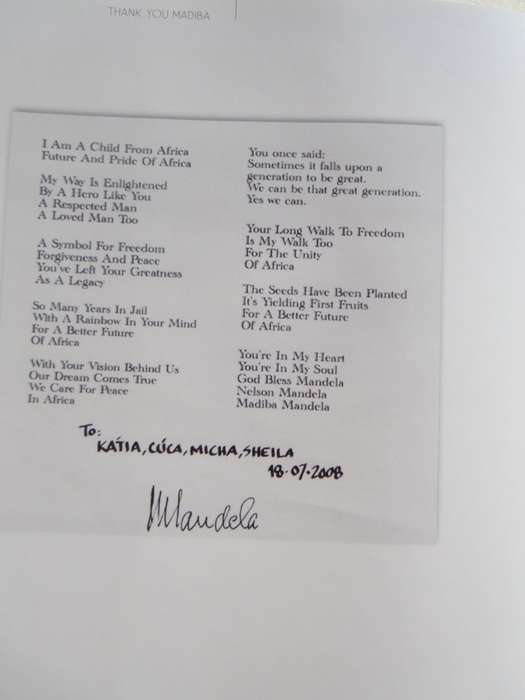 THANK YOU MADIBA
I Am A Child From Africa
Future And Pride Of Africa
My Way Is Enlightened
By A Hero Like You
A Respected Man
A Loved Man Too
A Symbol For Freedom
Forgiveness And Peace
You've Left Your Greatness
As A Legacy
So Many Years In Jail
With A Rainbow In Your Mind
For A Better Future
Of Africa
With Your Vision Behind Us
Our Dream Comes True
We Care For Peace
In Africa
You once said:
Sometimes it falls upon a
generation to be great.
We can be that great generation.
Yes we can.
Your Long Walk To Freedom
Is My Walk Too
For The Unity
Of Africa
The Seeds Have Been Planted
It's Yielding First Fruits
For A Better Future
Of Africa
You're In My Heart
You're In My Soul
God Bless Mandela
Nelson Mandela
Madiba Mandela
To:
KÁTIA, CÚCA, MICHA, SHEILA
18.07.2008
Mandela